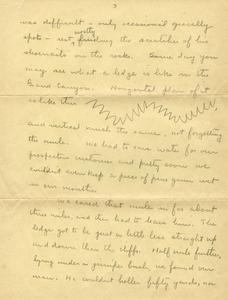 3
was difficult - only occasional gravelly
spots - not finding the scratches of his
shoenails on the rocks. Some day you
may see what a ledge is like in the
Grand Canyon. Horizontal plan of it
is like this
and vertical much the same, not forgetting
the mule. We had to save water for our
prospective customer and pretty soon we
couldn't even keep a piece of pine gum wet
in our mouths.
We eased that mule in for about
three miles, and then had to leave him. The
ledge got to be just a little less straight up
and down than the cliffs. Half mile further,
lying under a juniper bush, we found our
man. He couldn't holler fifty yards, nor